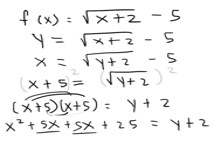 f(x) = √(x+2) - 5
y = √(x+2) - 5
x = √(y+2) - 5
(x+5)² = (√(y+2))²
(x+5)(x+5) = y+2
x² + 5x + 5x + 25 = y+2